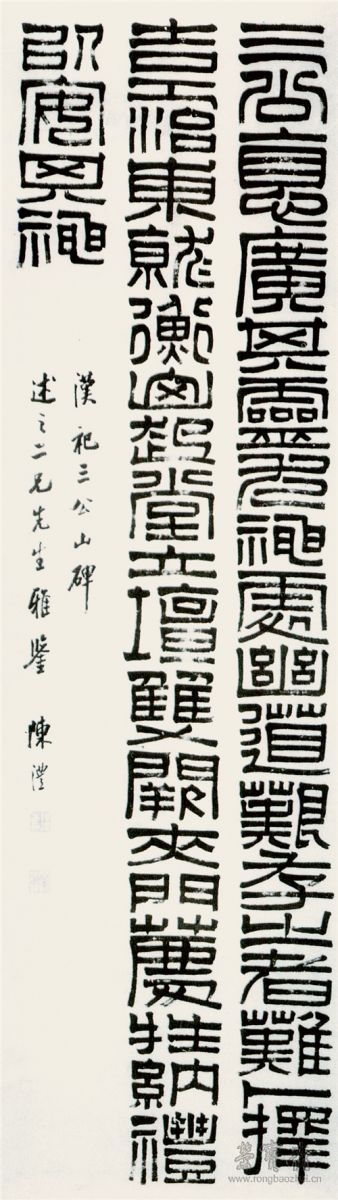 三公惪廣其靈尤神處幽道艱存之者難卜擇
吉工治東就衡山起堂立壇雙闕夾門薦牲納禮
以寧其神
漢祀三公山碑
述之二兄先生雅鑒 陳澧
www.rongbaozhai.cn